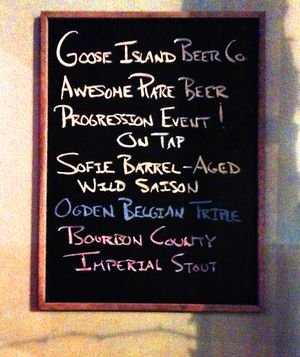 Goose Island Beer Co.
Awesome Rare Beer
Progression Event!
On Tap
Sofie Barrel-Aged
Wild Saison
Ogden Belgian Triple
Bourbon County
Imperial Stout